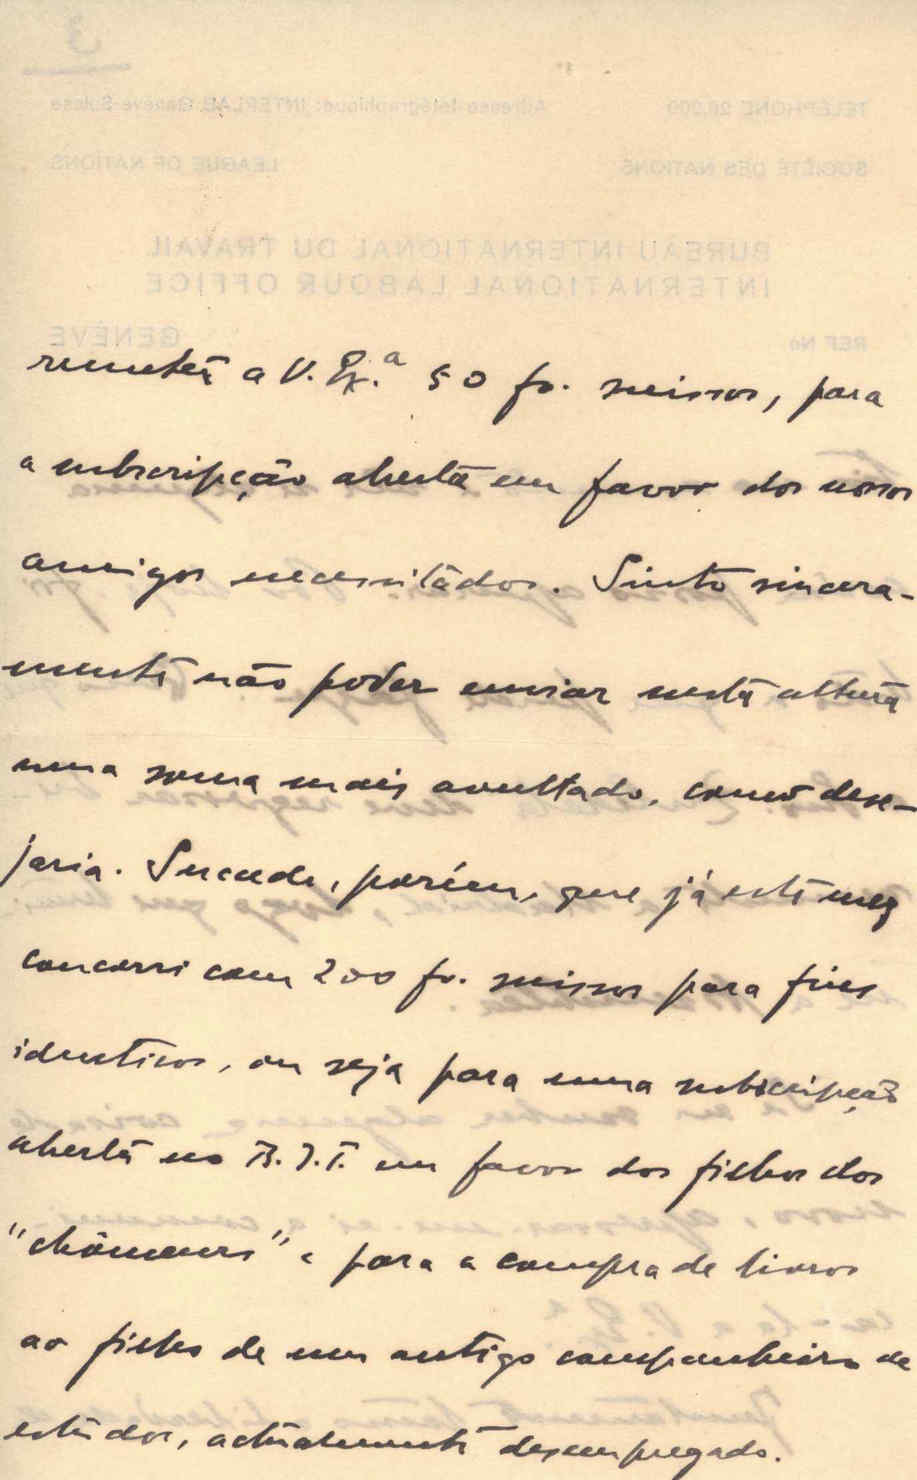 remeter a V. Ex.ª 50 fr. suissos, para
a subscripção aberta em favor dos nossos
amigos necessitados. Sinto sincera-
mente não poder enviar nesta altura
uma soma mais avultada, como dese-
jaria. Sucede, porém, que já este mez
concorri com 200 fr. suissos para fins
identicos, ou seja para uma subscripção
aberta no B.I.T. em favor dos filhos dos
"chômeurs" e para a compra de livros
ao filho de um antigo companheiro de
estudos, actualmente desempregado.